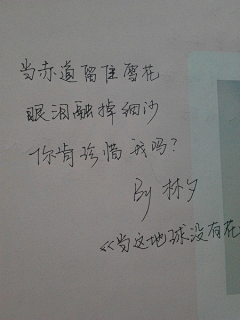 当赤道留住雪花
眼泪融掉细沙
你肯珍惜我吗？
By 林夕
《当这地球没有花